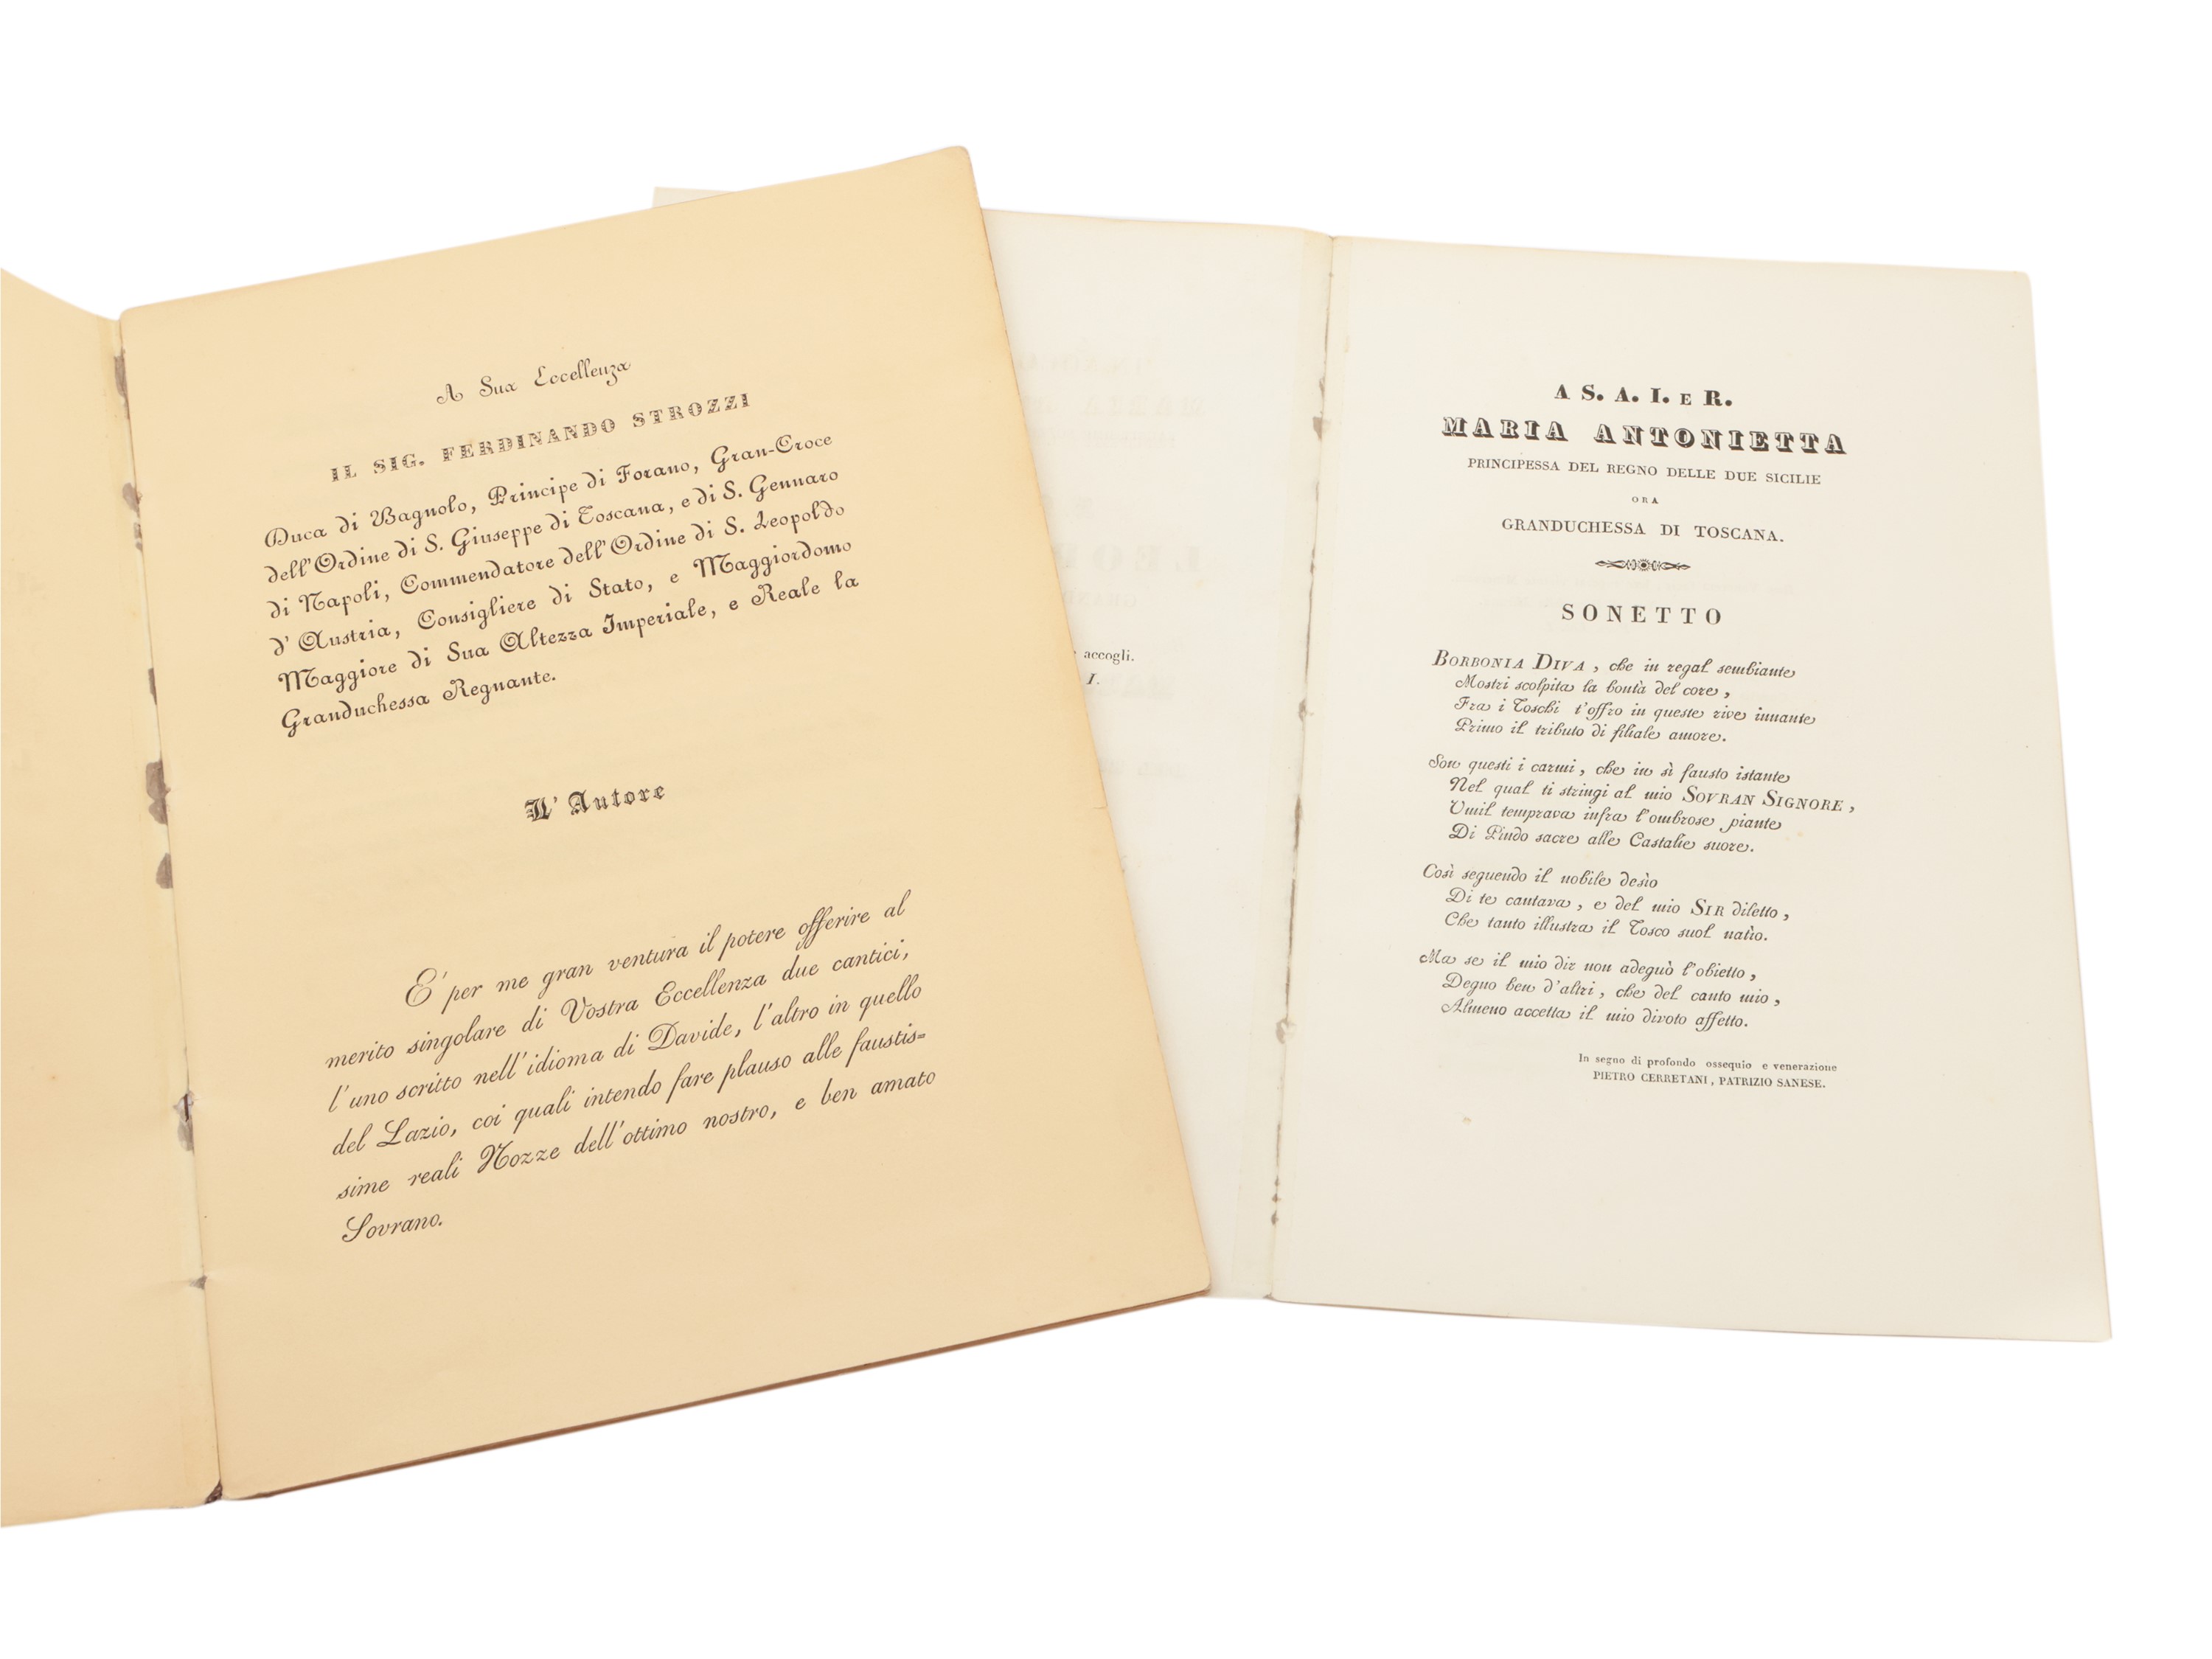 A Sua Eccellenza
IL SIG. FERDINANDO STROZZI
Duca di Bagnolo, Principe di Forano, Gran-Croce
dell'Ordine di S. Giuseppe di Toscana, e di S. Gennaro
di Napoli, Commendatore dell'Ordine di S. Leopoldo
d'Austria, Consigliere di Stato, e Maggiordomo
Maggiore di Sua Altezza Imperiale, e Reale la
Granduchessa Regnante.
L'Autore
E' per me gran ventura il potere offerire al
merito singolare di Vostra Eccellenza due cantici,
l'uno scritto nell'idioma di Davide, l'altro in quello
del Lazio, coi quali intendo fare plauso alle faustis=
sime reali Nozze dell'ottimo nostro, e ben amato
Sovrano.
accogli.
I.
A S. A. I. E R.
MARIA ANTONIETTA
PRINCIPESSA DEL REGNO DELLE DUE SICILIE
ORA
GRANDUCHESSA DI TOSCANA.
SONETTO
BORBONIA DIVA, che in regal sembiante
Mostri scolpita la bontà del core,
Fra i Toschi t'offro in queste rive innante
Primo il tributo di filiale amore.
Son questi i carmi, che in sì fausto istante
Nel qual ti stringi al mio SOVRAN SIGNORE,
Umil temprava infra l'ombrose piante
Di Pindo sacre alle Castalie suore.
Così seguendo il nobile desìo
Di te cantava, e del mio SIR diletto,
Che tanto illustra il Tosco suol natìo.
Ma se il mio dir non adeguò l'obietto,
Degno ben d'altri, che del canto mio,
Almeno accetta il mio divoto affetto.
In segno di profondo ossequio e venerazione
PIETRO CERRETANI, PATRIZIO SANESE.